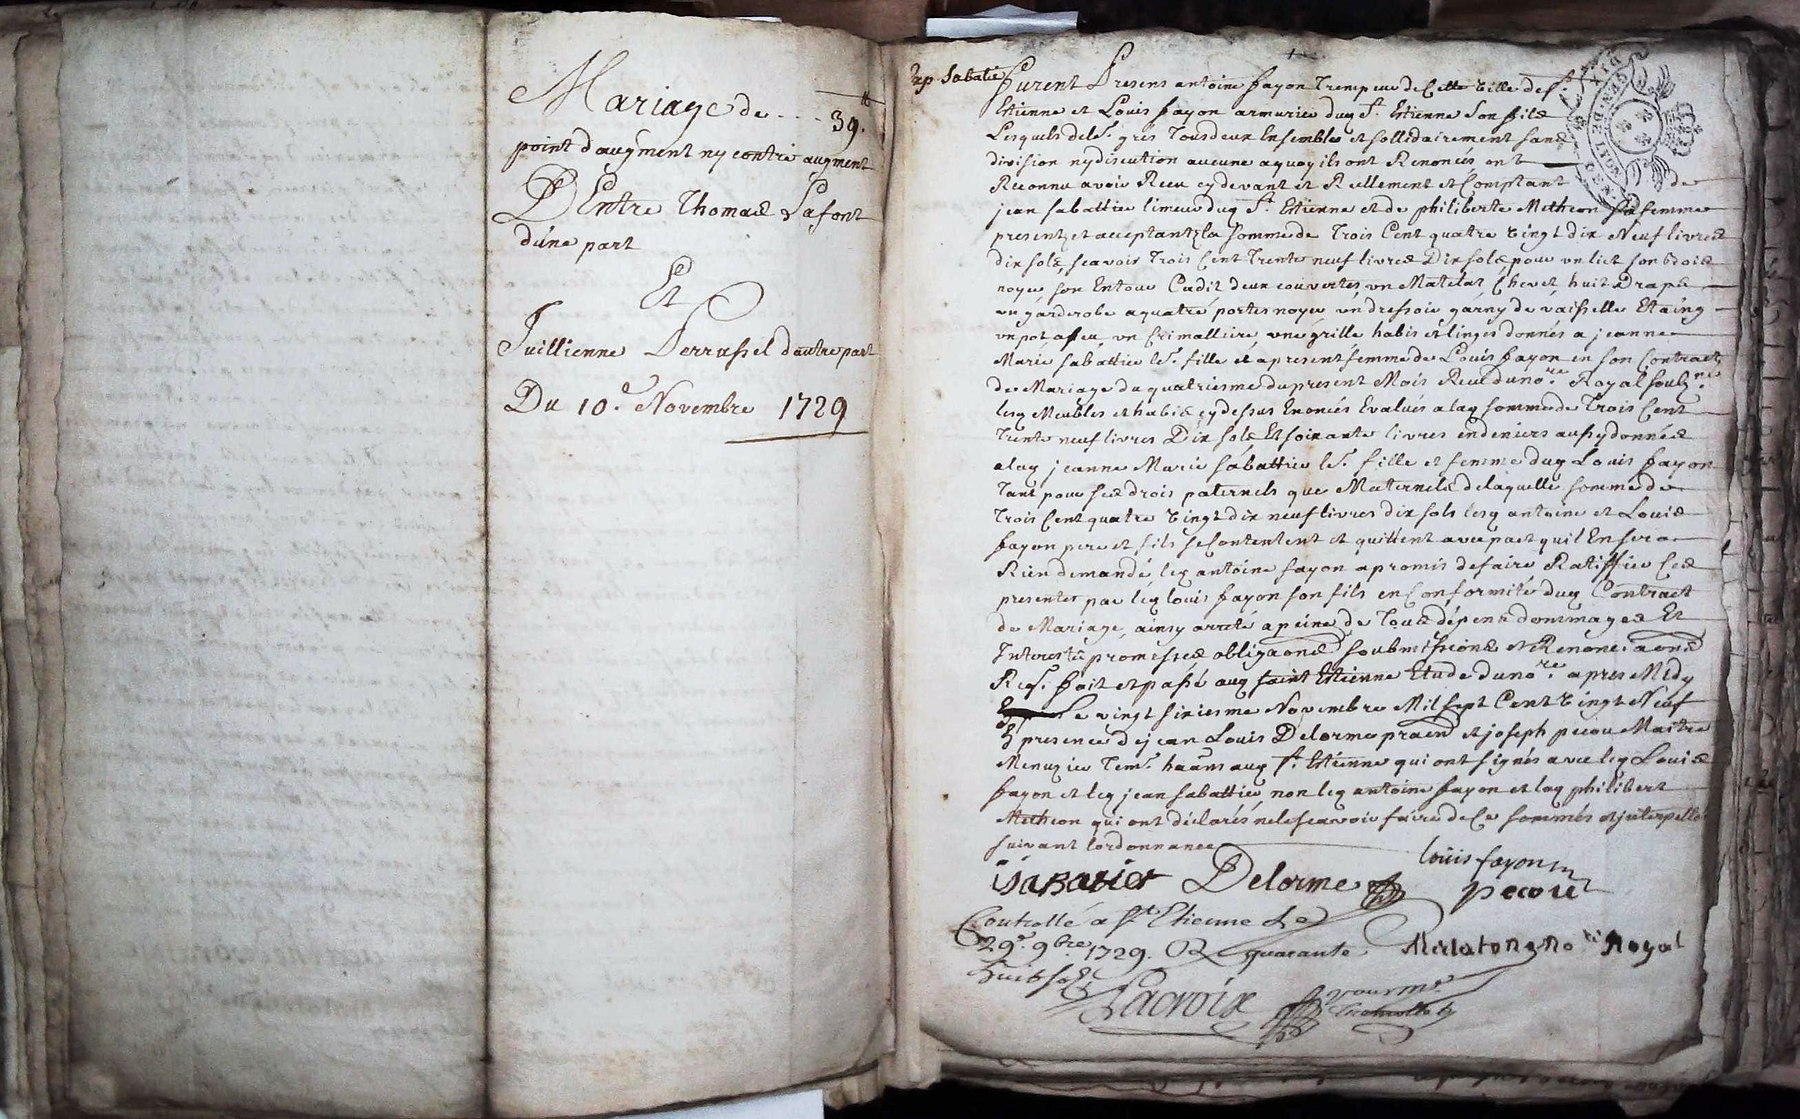 Mariage de ---- 39.
point d'augment ny contre augment
D'Entre Thomas Lafont
d'une part
Et
Juillienne Perrussel d'autre part
Du 10.e Novembre 1729
Exp. Sabatie
Furent Presens antoine fayon Trempeur de Cette ville de St.
Etienne et Louis fayon armurier duq St. Estienne son fils
Lesquels de lr. gres Tous deux Ensembles et sollidairement sans
division ny discution aucune a quoy ils ont Renoncés ont
Reconnu avoir Receu cy devant et Reellement et Comptant de
jean sabattier limeur duq St. Estienne et de philiberte Metheon sa femme
presents et acceptants la somme de Trois Cent quatre vingt dix Neuf livres
dix sols, scavoir Trois Cent Trente neuf livres Dix sols pour un lict son bois
noyer son Entour Cadit deux couvertes un Matelat Chevet huit Draps
un garderobe a quatre portes noyer un dressoir garny de vaisselle Etaing
un pot a feu un Crimalliere, une grille habis et linges donnés a jeanne
Marie sabattier lr. fille et apresent femme de Louis fayon en son Contract
de Mariage du quatriesme du present Mois Receu du nore. Royal soubzne.
lesq Meubles et habis cy dessus Enoncés Evalués a laq somme de Trois Cent
Trente neuf livres Dix sols Et soixante livres en deniers aussy donnés
a laq jeanne Marie sabattier lr. fille et femme duq Louis fayon
Tant pour ses drois paternels que Maternels de laquelle somme de
Trois Cent quatre vingt dix neuf livres dix sols lesq antoine et Louis
fayon pere et fils se Contentent et quittent avec pact quil En sera
Rien demandé, leq antoine fayon a promis de faire Ratiffier Ces
presentes par leq louis fayon son fils en Conformité duq Contract
de Mariage, ainsy arreté a peine de Tous dépens dommages Et
Interests promesses obligaons soubmissions et Renonciaons
Req. fait et passé auq saint Estienne Etude du nore. apres Midy
Le vingt sixiesme Novembre Mil sept Cent vingt Neuf
E presence de jean Louis Delorme praen et joseph pecou Maitre
Menuzier Tem. haans auq St. Etienne qui ont signés avec leq Louis
fayon et leq jean sabattier, non leq antoine fayon et laq philibert
Metheon qui ont déclarés ne le scavoir faire de Ce sommés et interpellés
suivant lordonnance
louis fayon
isabatier Delorme pecou
Controllé a St. Etienne Le
29e. 9bre. 1729. R quarante Midatong No.re Royal
huit sols
Lacroix